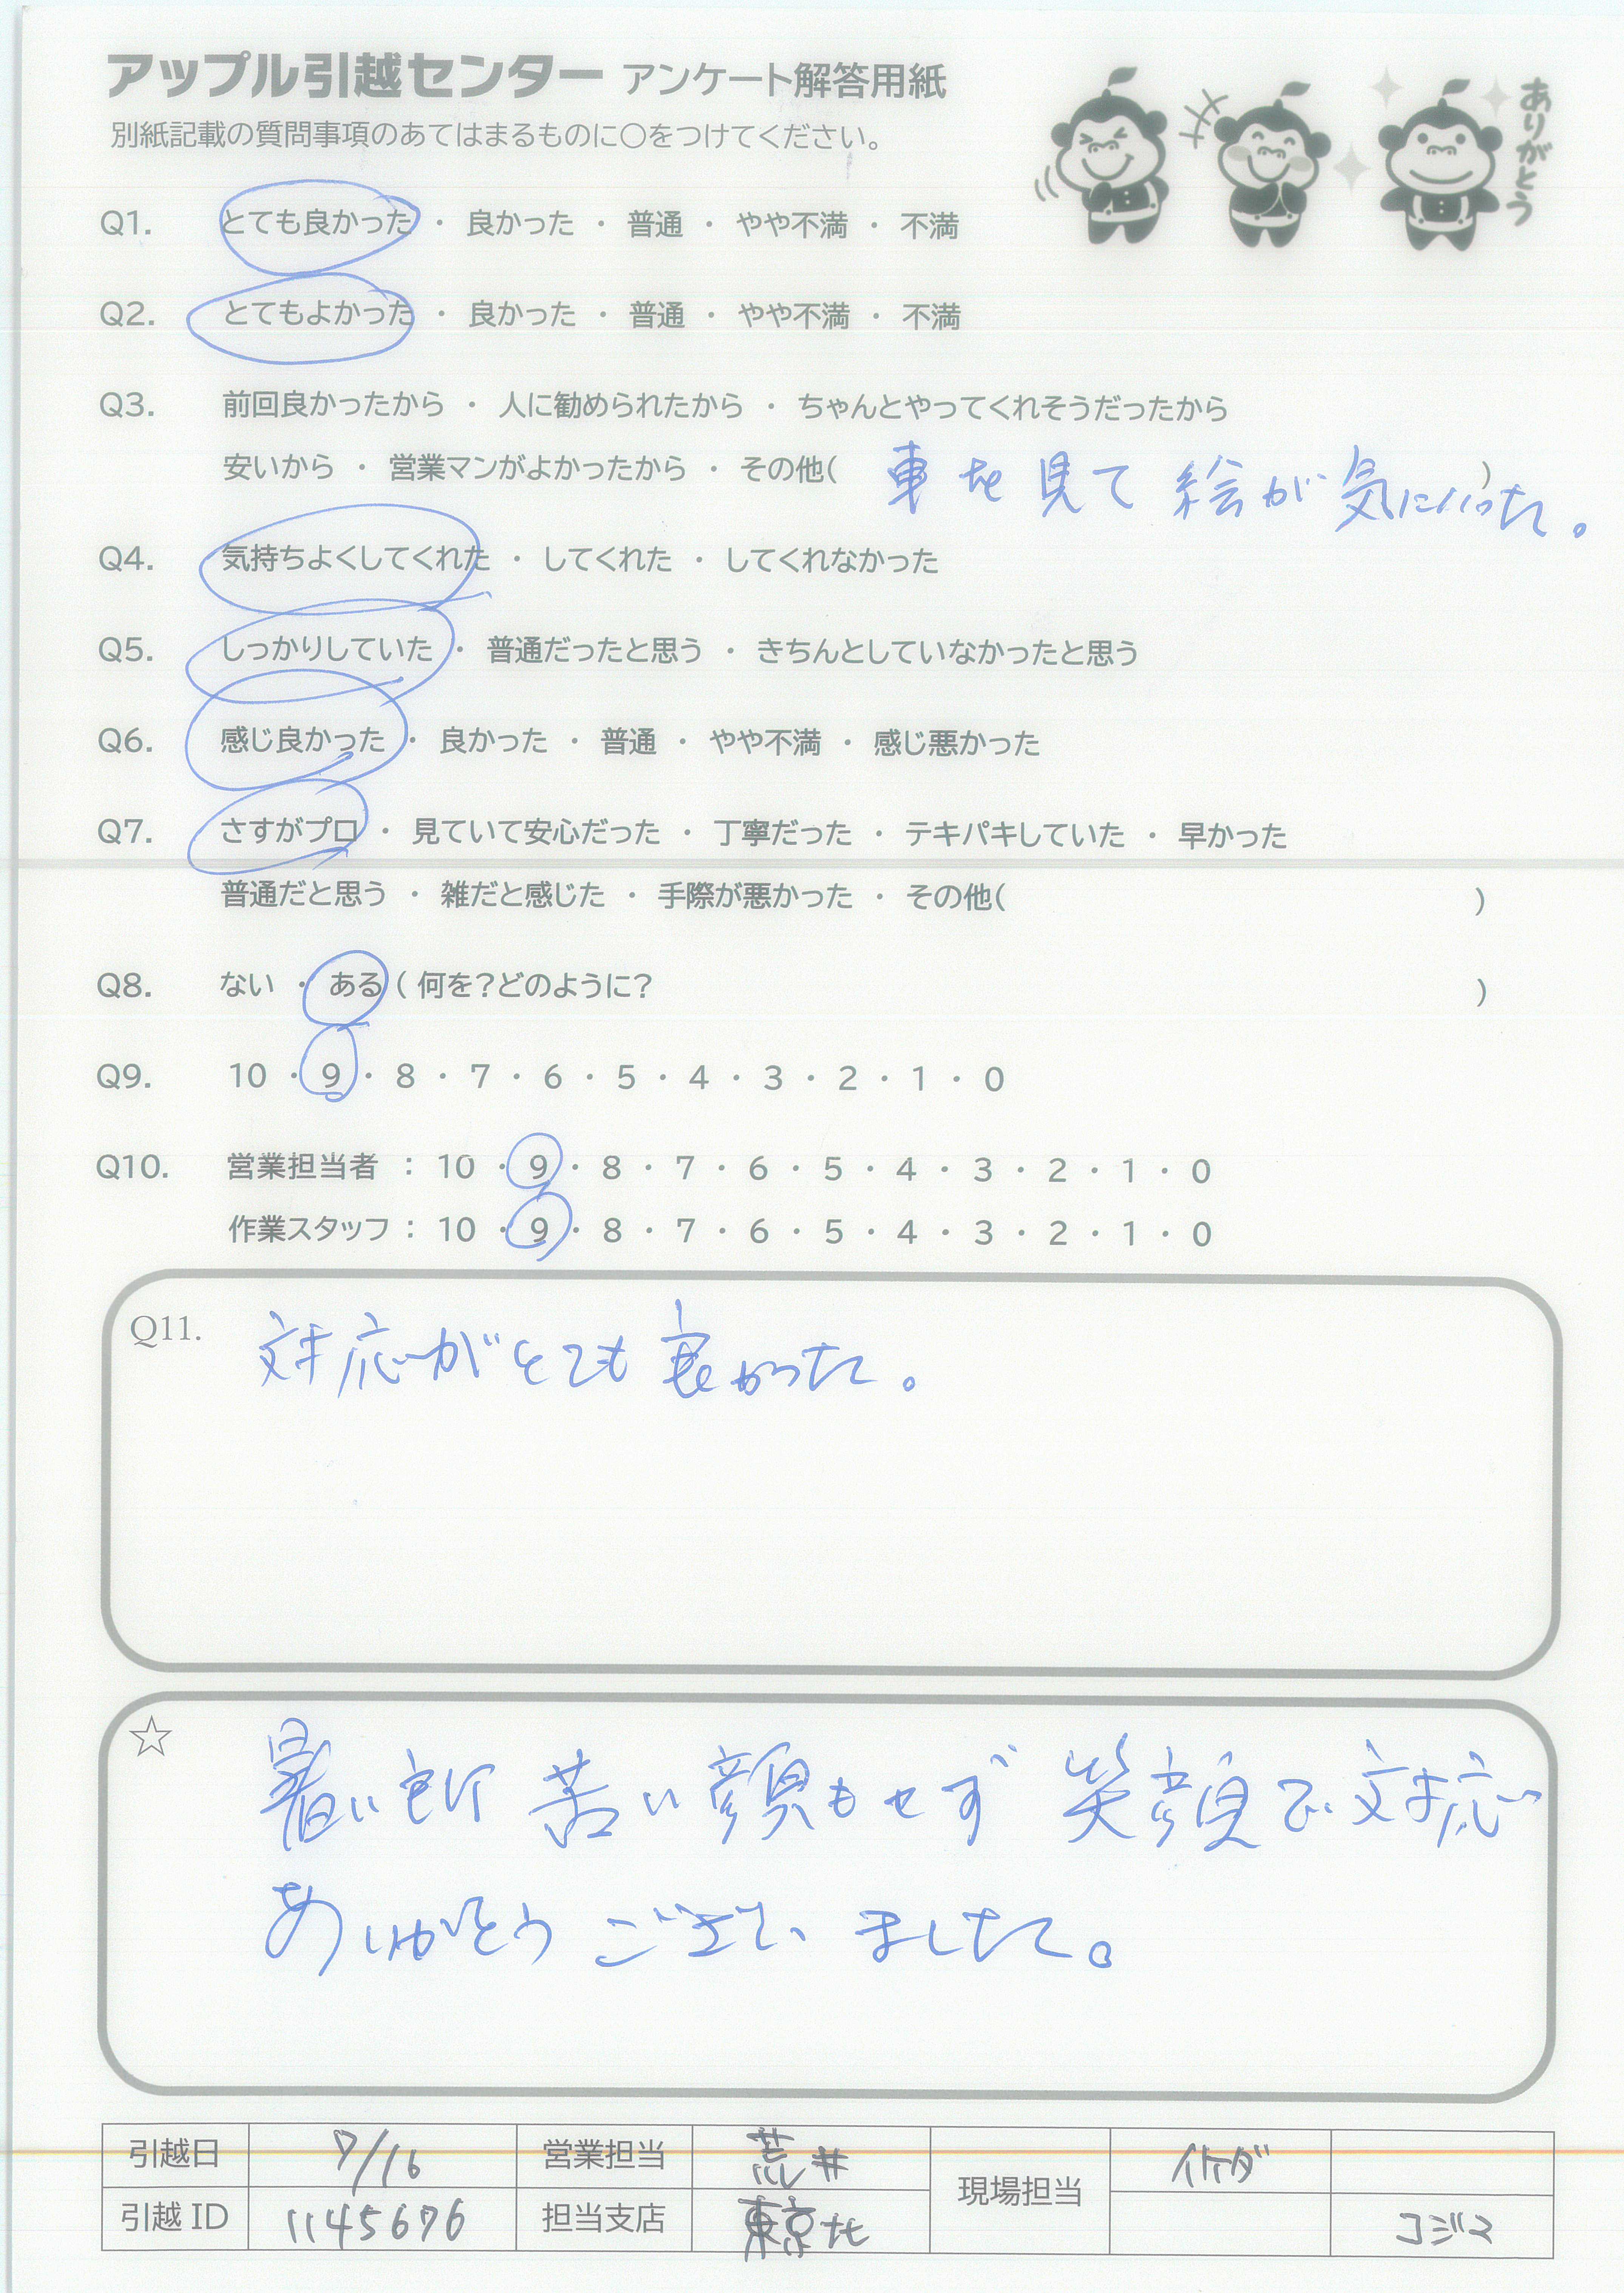 アップル引越センター アンケート解答用紙
別紙記載の質問事項のあてはまるものに〇をつけてください。
ありがとう
Q1. とても良かった ・ 良かった ・ 普通 ・ やや不満 ・ 不満
Q2. とてもよかった ・ 良かった ・ 普通 ・ やや不満 ・ 不満
Q3. 前回良かったから ・ 人に勧められたから ・ ちゃんとやってくれそうだったから
安いから ・ 営業マンがよかったから ・ その他( 車を見て 絵が気に入った。 )
Q4. 気持ちよくしてくれた ・ してくれた ・ してくれなかった
Q5. しっかりしていた ・ 普通だったと思う ・ きちんとしていなかったと思う
Q6. 感じ良かった ・ 良かった ・ 普通 ・ やや不満 ・ 感じ悪かった
Q7. さすがプロ ・ 見ていて安心だった ・ 丁寧だった ・ テキパキしていた ・ 早かった
普通だと思う ・ 雑だと感じた ・ 手際が悪かった ・ その他( )
Q8. ない ・ ある ( 何を?どのように? )
Q9. 10 ・ 9 ・ 8 ・ 7 ・ 6 ・ 5 ・ 4 ・ 3 ・ 2 ・ 1 ・ 0
Q10. 営業担当者 : 10 ・ 9 ・ 8 ・ 7 ・ 6 ・ 5 ・ 4 ・ 3 ・ 2 ・ 1 ・ 0
作業スタッフ : 10 ・ 9 ・ 8 ・ 7 ・ 6 ・ 5 ・ 4 ・ 3 ・ 2 ・ 1 ・ 0
Q11. 対応がとても良かった。
☆ 暑い中 苦い顔もせず 笑顔で対応
ありがとうございました。
引越日 7/16 営業担当 荒井 現場担当 イケダ
引越 ID 1145676 担当支店 東京北 コジマ